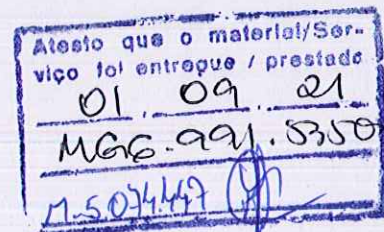 Atesto que o material/Ser-
viço foi entregue / prestado
01 . 09 . 21
MG6.991.5350
M-5.074.447